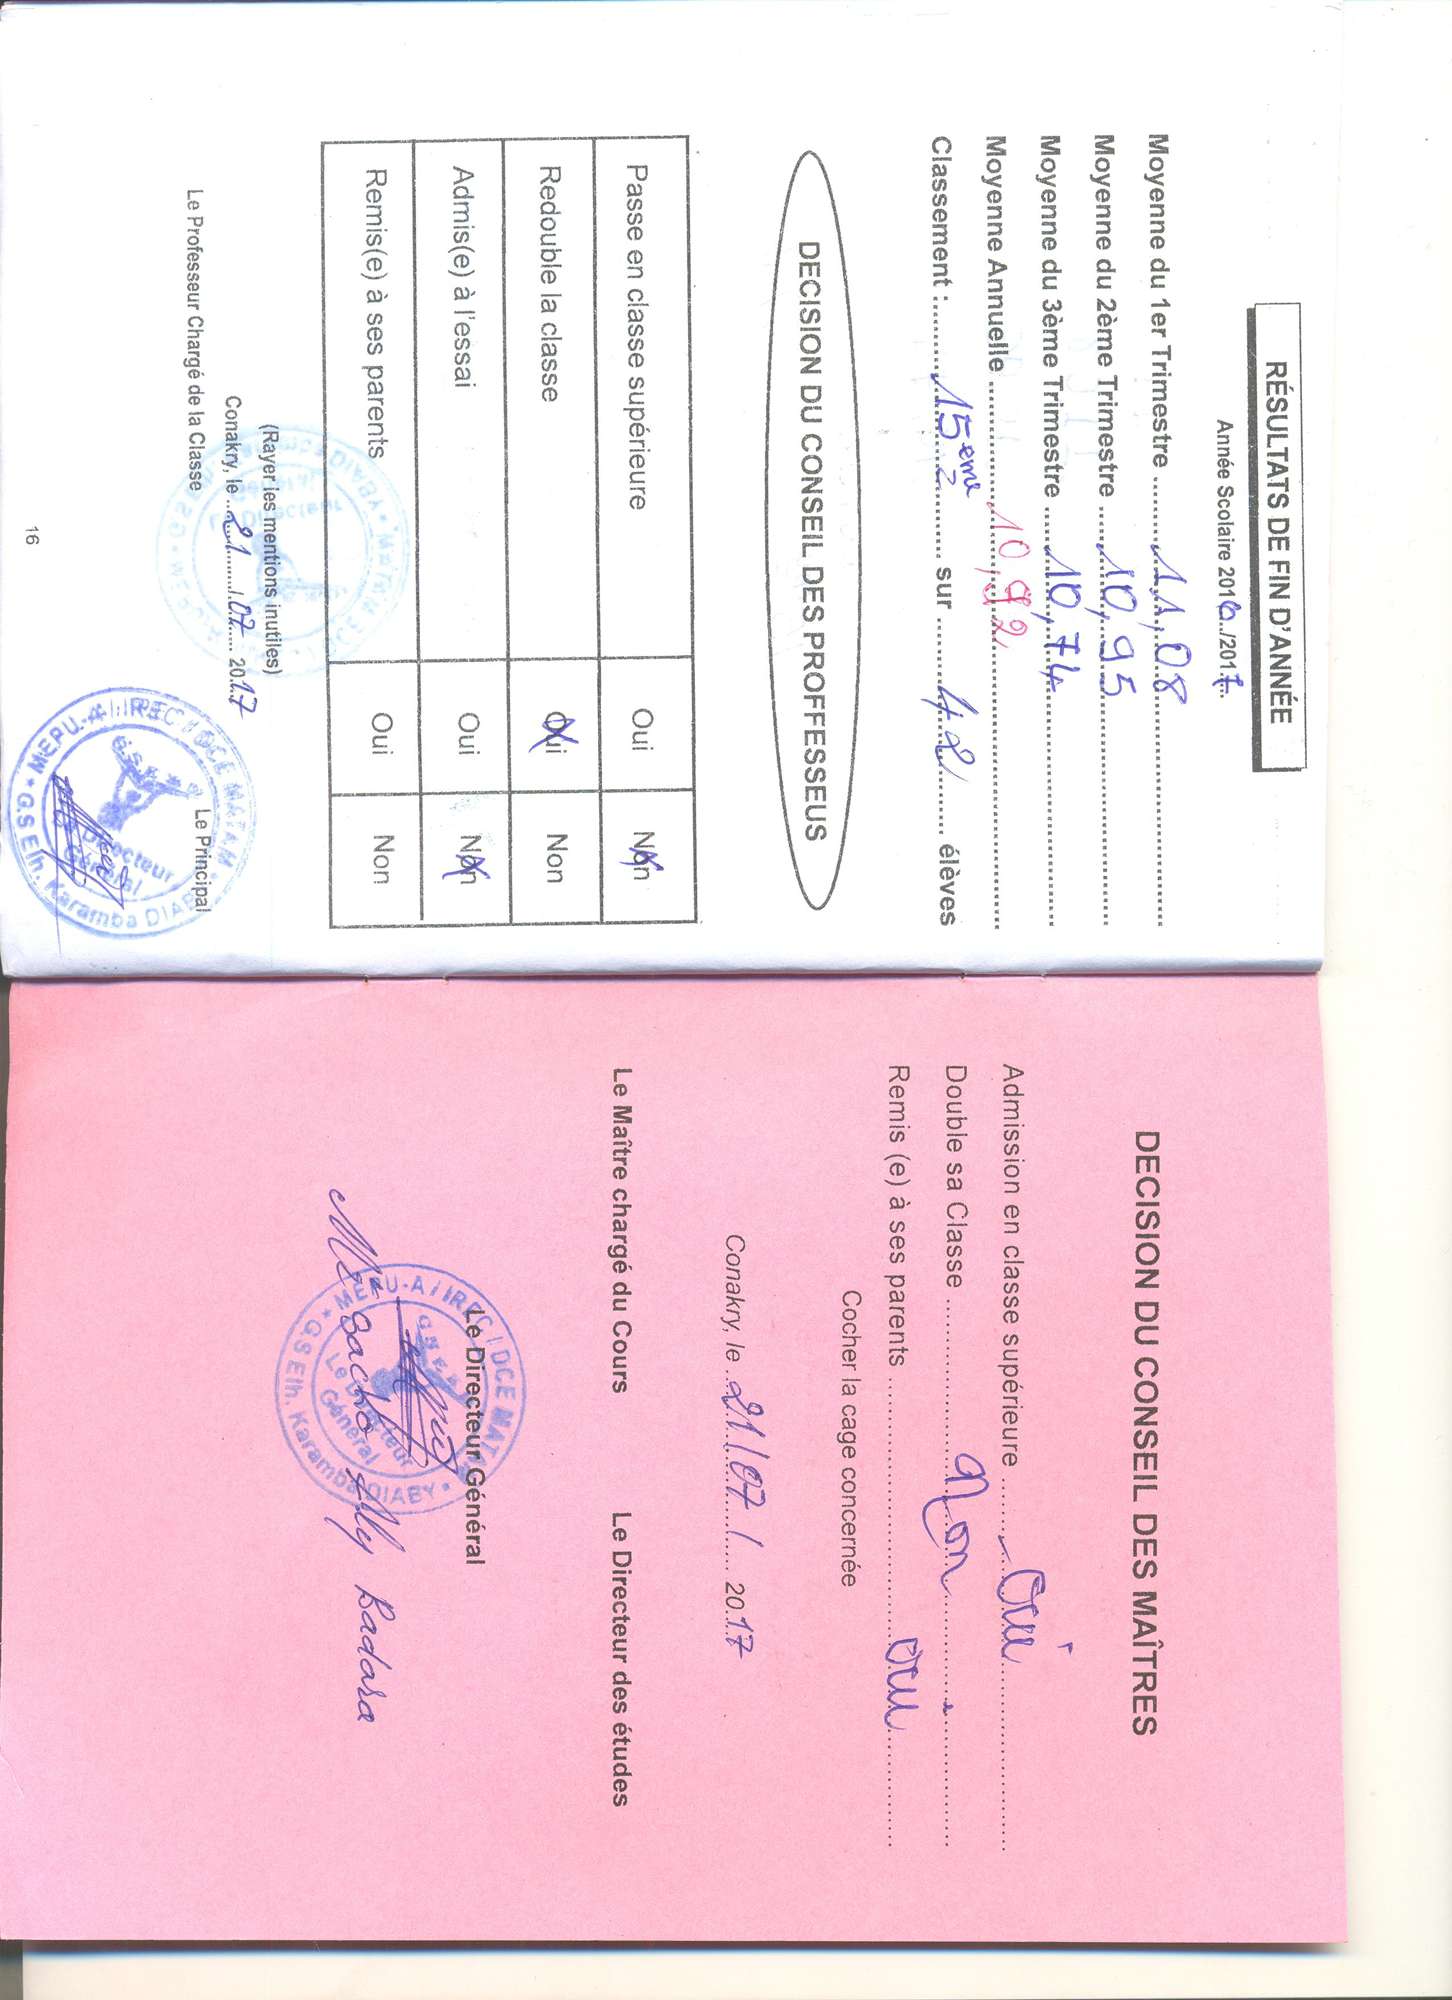 RÉSULTATS DE FIN D'ANNÉE
Année Scolaire 2016../2017..
Moyenne du 1er Trimestre ........11,08........
Moyenne du 2ème Trimestre ........10,95........
Moyenne du 3ème Trimestre ........10,74........
Moyenne Annuelle ........10,92........
Classement : ........15eme........ sur ........42........ élèves
DECISION DU CONSEIL DES PROFFESSEUS
Passe en classe supérieure Oui Non
Redouble la classe Oui Non
Admis(e) à l'essai Oui Non
Remis(e) à ses parents Oui Non
(Rayer les mentions inutiles)
Conakry, le ..21../..07.. 2017
Le Professeur Chargé de la Classe
Le Principal
MEPU-A / IREC / DCE MATAM
G.S.E.K.D
Le Directeur Général
G.S Elh. Karamba DIABY
16
DECISION DU CONSEIL DES MAÎTRES
Admission en classe supérieure ........Oui........
Double sa Classe ........Non........
Remis (e) à ses parents ........oui........
Cocher la cage concernée
Conakry, le ..21/07/.. 2017
Le Maître chargé du Cours
Le Directeur des études
Le Directeur Général
MEPU-A / IREC / DCE MAT
Le Directeur Général
G.S Elh. Karamba DIABY
Mr Sacko Aly Badara